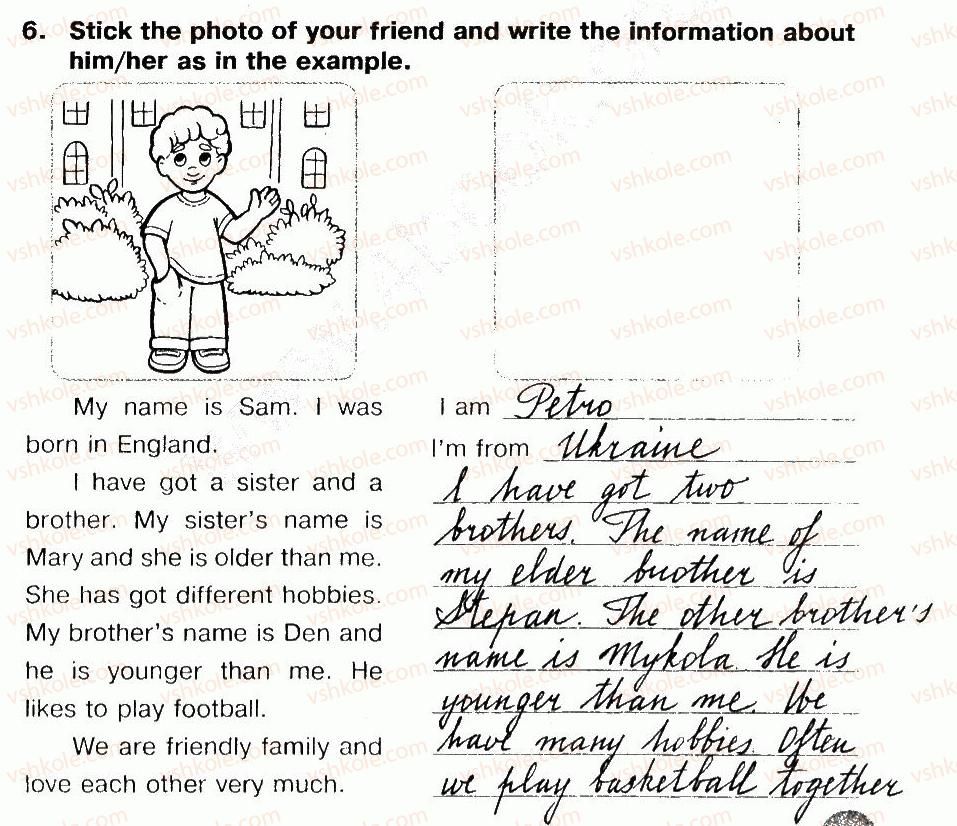 6. Stick the photo of your friend and write the information about
him/her as in the example.
My name is Sam. I was
born in England.
I have got a sister and a
brother. My sister's name is
Mary and she is older than me.
She has got different hobbies.
My brother's name is Den and
he is younger than me. He
likes to play football.
We are friendly family and
love each other very much.
I am Petro
I'm from Ukraine
I have got two
brothers. The name of
my elder brother is
Stepan. The other brother's
name is Mykola. He is
younger than me. We
have many hobbies. Often
we play basketball together
vshkole.com